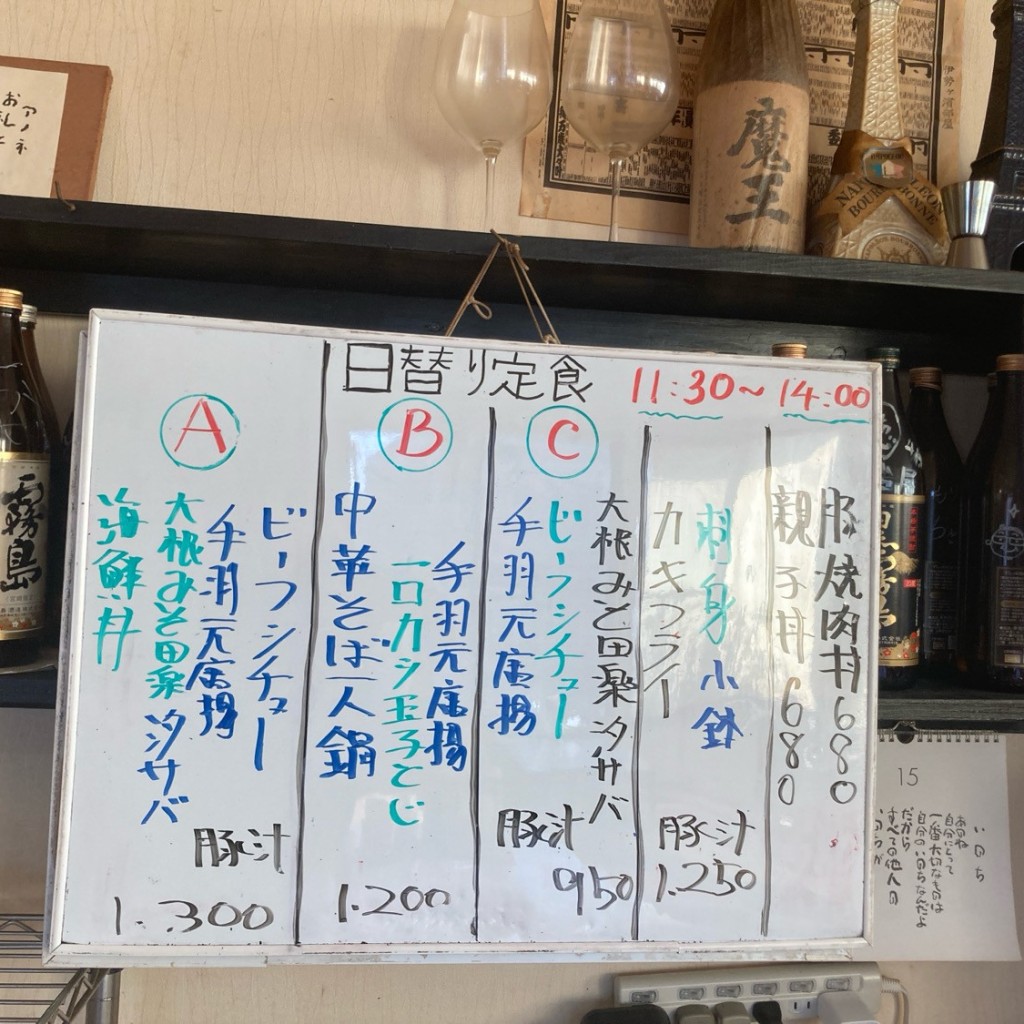 魔王
伊勢ヶ酒屋
NAPOLEON
BOURGOGNE
霧島
日替り定食 11:30~14:00
A
ビーフシチュー
手羽元唐揚
大根みそ田楽 汐サバ
海鮮丼
豚汁
1.300
B
手羽元唐揚
一口カツ玉子とじ
中華そば一人鍋
1.200
C
大根みそ田楽 汐サバ
ビーフシチュー
手羽元唐揚
豚汁
950
刺身 小鉢
カキフライ
豚汁
1.250
豚焼肉丼 680
親子丼 680
15